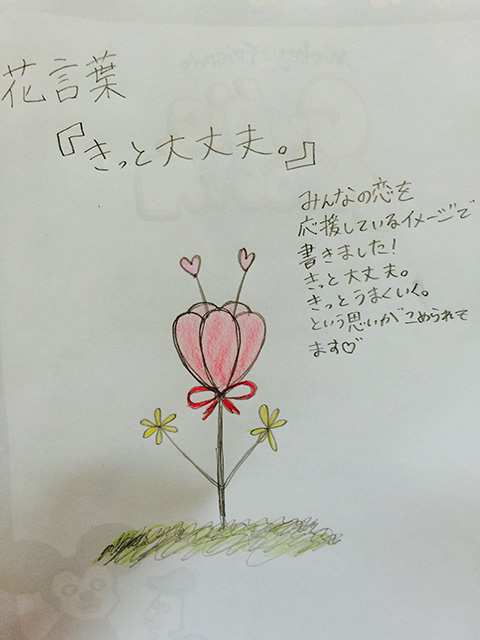 花言葉
『きっと大丈夫。』
みんなの恋を
応援しているイメージで
書きました!
きっと大丈夫。
きっとうまくいく。
という思いがこめられて
ます♡